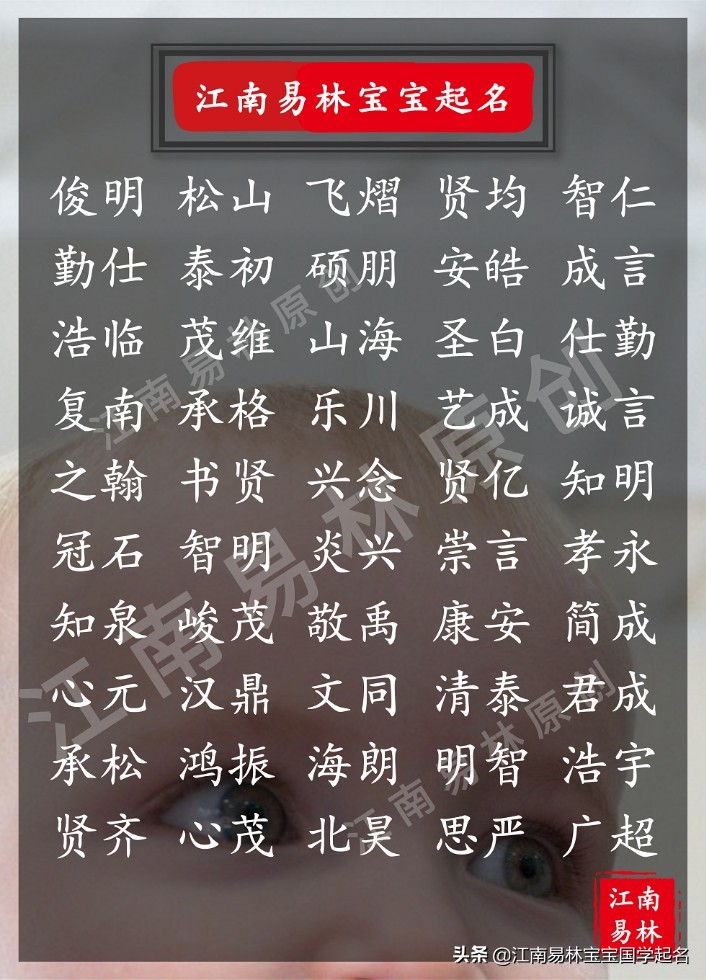 江南易林宝宝起名
俊明 松山 飞熠 贤均 智仁
勤仕 泰初 硕朋 安皓 成言
浩临 茂维 山海 圣白 仕勤
复南 承格 乐川 艺成 诚言
之翰 书贤 兴念 贤亿 知明
冠石 智明 炎兴 崇言 孝永
知泉 峻茂 敬禹 康安 简成
心元 汉鼎 文同 清泰 君成
承松 鸿振 海朗 明智 浩宇
贤齐 心茂 北昊 思严 广超
江南易林原创
江南易林原创
江南易林原创
江南
易林
头条 @江南易林宝宝国学起名